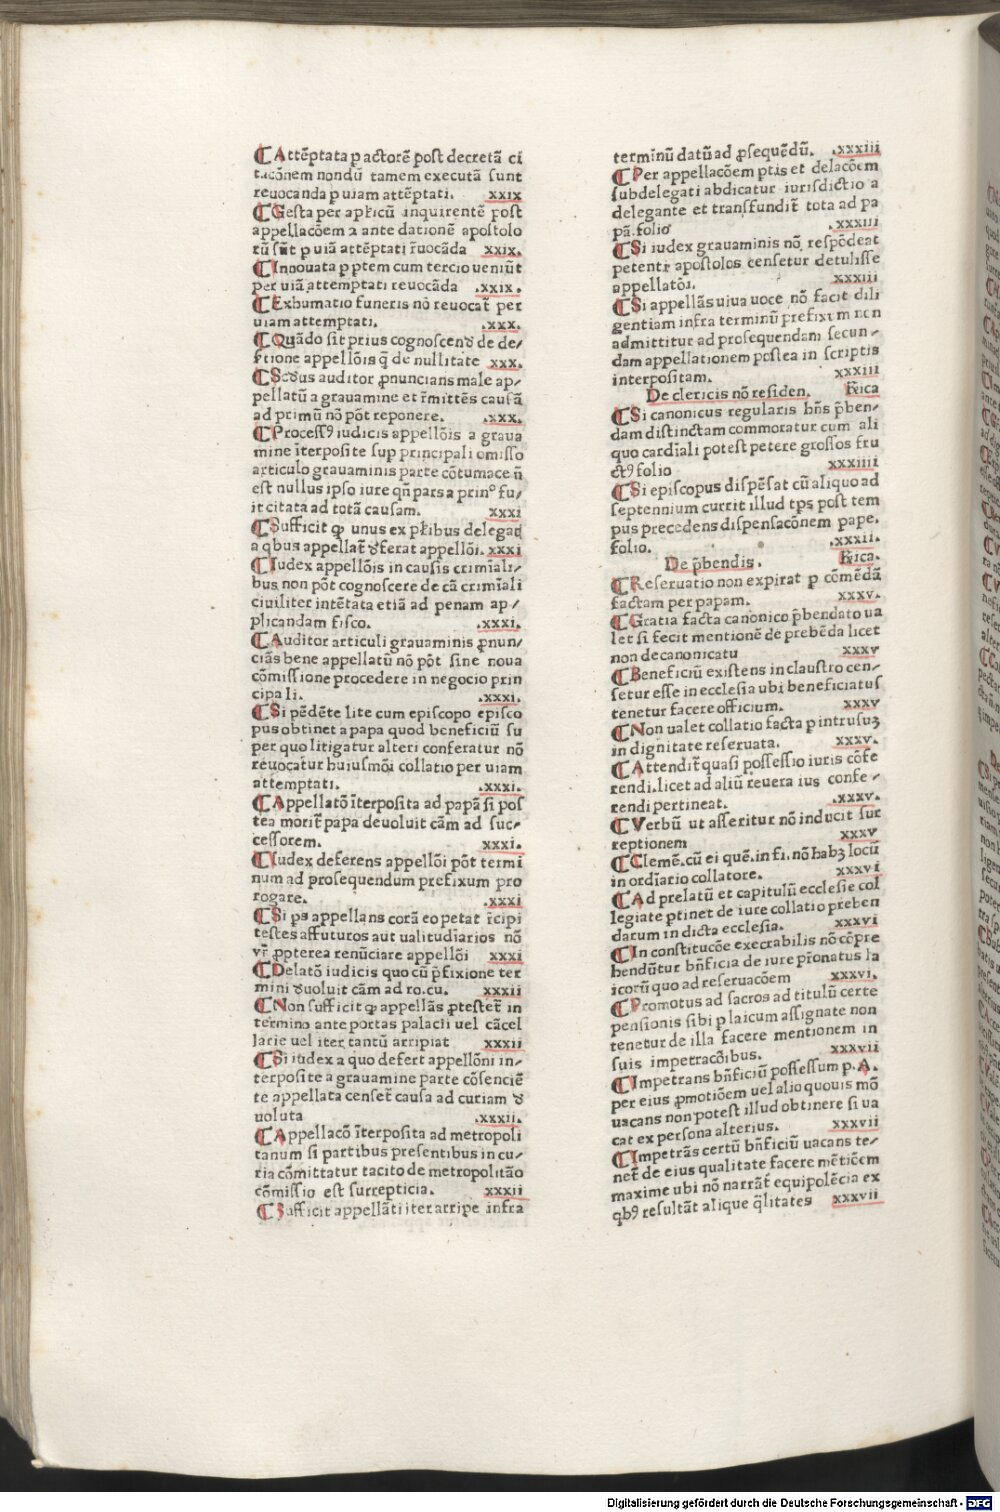 ¶Attētata p actorē post decretā ci
tacōnem nondū tamem executā sunt
reuocanda p uiam attēptati. xxix
¶Gesta per aplicū inquirentē post
appellacōem ⁊ ante dationē apostolo
rū sūt p uiā attēptati r̄uocāda xxix.
¶Innouata p ptem cum tercio ueniūt
per uiā attemptati reuocāda .xxix.
¶Exhumatio funeris nō reuocat̄ per
uiam attemptati. .xxx.
¶Quādo sit prius cognoscend̄ de de/
sertione appellōis q̄ de nullitate xxx.
¶Scd̄us auditor ꝓnuncians male ap/
pellatū a grauamine et r̄mittēs causā
ad primū nō pōt reponere. .xxx.
¶Processꝰ iudicis appellōis a graua
mine īterposite sup principali omisso
articulo grauaminis parte cōtumace ñ
est nullus ipso iure qn̄ pars a prin° fu/
it citata ad totā causam. xxxi
¶Sufficit ꝙ unus ex pl̄ibus delegat̄
a qbus appellat̄ d̄ferat appellōi. xxxi
¶Iudex appellōis in causis crimīali/
bus non pōt cognoscere de cā crimīali
ciuiliter intētata etiā ad penam ap/
plicandam fisco. .xxxi.
¶Auditor articuli grauaminis ꝓnun/
ciās bene appellatū nō pōt sine noua
cōmissione procedere in negocio prin
cipali. .xxxi.
¶Si pēdēte lite cum episcopo episco
pus obtinet a papa quod beneficiū su
per quo litigatur alteri conferatur nō
reuocatur huiusmōi collatio per uiam
attemptati. .xxxi.
¶Appellatō īterposita ad papā si pos
tea morit̄ papa deuoluit cām ad suc/
cessorem. xxxi.
¶Iudex deferens appellōi pōt termi
num ad prosequendum prefixum pro
rogare. .xxxi
¶Si ps appellans corā eo petat r̄cipi
testes affuturos aut ualitudīarios nō
vr̄ ꝓpterea renūciare appellōi xxxi
¶Delatō iudicis quo cū p̄fixione ter
mini d̄uoluit cām ad ro.cu. xxxii
¶Non sufficit ꝙ appellās ꝓtestet̄ in
termino ante portas palacii uel cācel
larie uel iter tantū arripiat xxxii
¶Si iudex a quo defert appellōni in/
terposite a grauamine parte cōsenciē
te appellata censet̄ causa ad curiam d̄
uoluta .xxxii.
¶Appellacō īterposita ad metropoli
tanum si partibus presentibus in cu/
ria cōmittatur tacito de metropolitāo
cōmissio est surrepticia. xxxii
¶Sufficit appellāti iter arripe infra
terminū datū ad ꝓsequēdū. .xxxiii
¶Per appellacōem ptis et delacōem
subdelegati abdicatur iurisdictio a
delegante et transfundit̄ tota ad pa
pā.folio .xxxiii
¶Si iudex grauaminis nō respōdeat
petenti apostolos censetur detulisse
appellatōi. xxxiii
¶Si appellās uiua uoce nō facit dili
gentiam infra terminū prefixum non
admittitur ad prosequendam secun/
dam appellationem postea in scriptis
interpositam. xxxiii
De clericis nō residen. Rīca
¶Si canonicus regularis bn̄s p̄ben/
dam distinctam commoratur cum ali
quo cardīali potest petere grossos fru
ctꝰ folio xxxiiii
¶Si episcopus dispēsat cū aliquo ad
septennium currit illud tps post tem
pus precedens dispensacōnem pape.
folio. .xxxii.
De p̄bendis. Rīca.
¶Reseruatio non expirat p cōmēdā
factam per papam. xxxv.
¶Gratia facta canonico p̄bendato ua
let si fecit mentionē de prebēda licet
non de canonicatu xxxv
¶Beneficiū existens in claustro cen/
setur esse in ecclesia ubi beneficiatus
tenetur facere officium. xxxv
¶Non ualet collatio facta p intrusuꝫ
in dignitate reseruata. xxxv.
¶Attendit̄ quasi possessio iuris cōfe
rendi.licet ad aliū reuera ius confe/
rendi pertineat. .xxxv.
¶Verbū ut asseritur nō inducit sur
reptionem xxxv
¶Clemē.cū ei quē.in fi. nō habꝫ locū
in ordīario collatore. xxxvi
¶Ad prelatū et capitulū ecclesie col
legiate ptinet de iure collatio preben
darum in dicta ecclesia. xxxvi
¶In constitucōe execrabilis nō cōpre
hendūtur bn̄ficia de iure pr̄onatus la
icorū quo ad reseruacōem xxxvi.
¶Promotus ad sacros ad titulū certe
pensionis sibi p laicum assignate non
tenetur de illa facere mentionem in
suis impetracōibus. xxxvii
¶Impetrans bn̄ficiū possessum p.A.
per eius ꝓmotiōem uel alio quouis mō
uacans non potest illud obtinere si ua
cat ex persona alterius. xxxvii
¶Impetrās certū bn̄ficiū uacans te/
net̄ de eius qualitate facere mētiōem
maxime ubi nō narrat̄ equipolēcia ex
qbꝰ resultāt alique q̄litates xxxvii
Digitalisierung gefördert durch die Deutsche Forschungsgemeinschaft - DFG